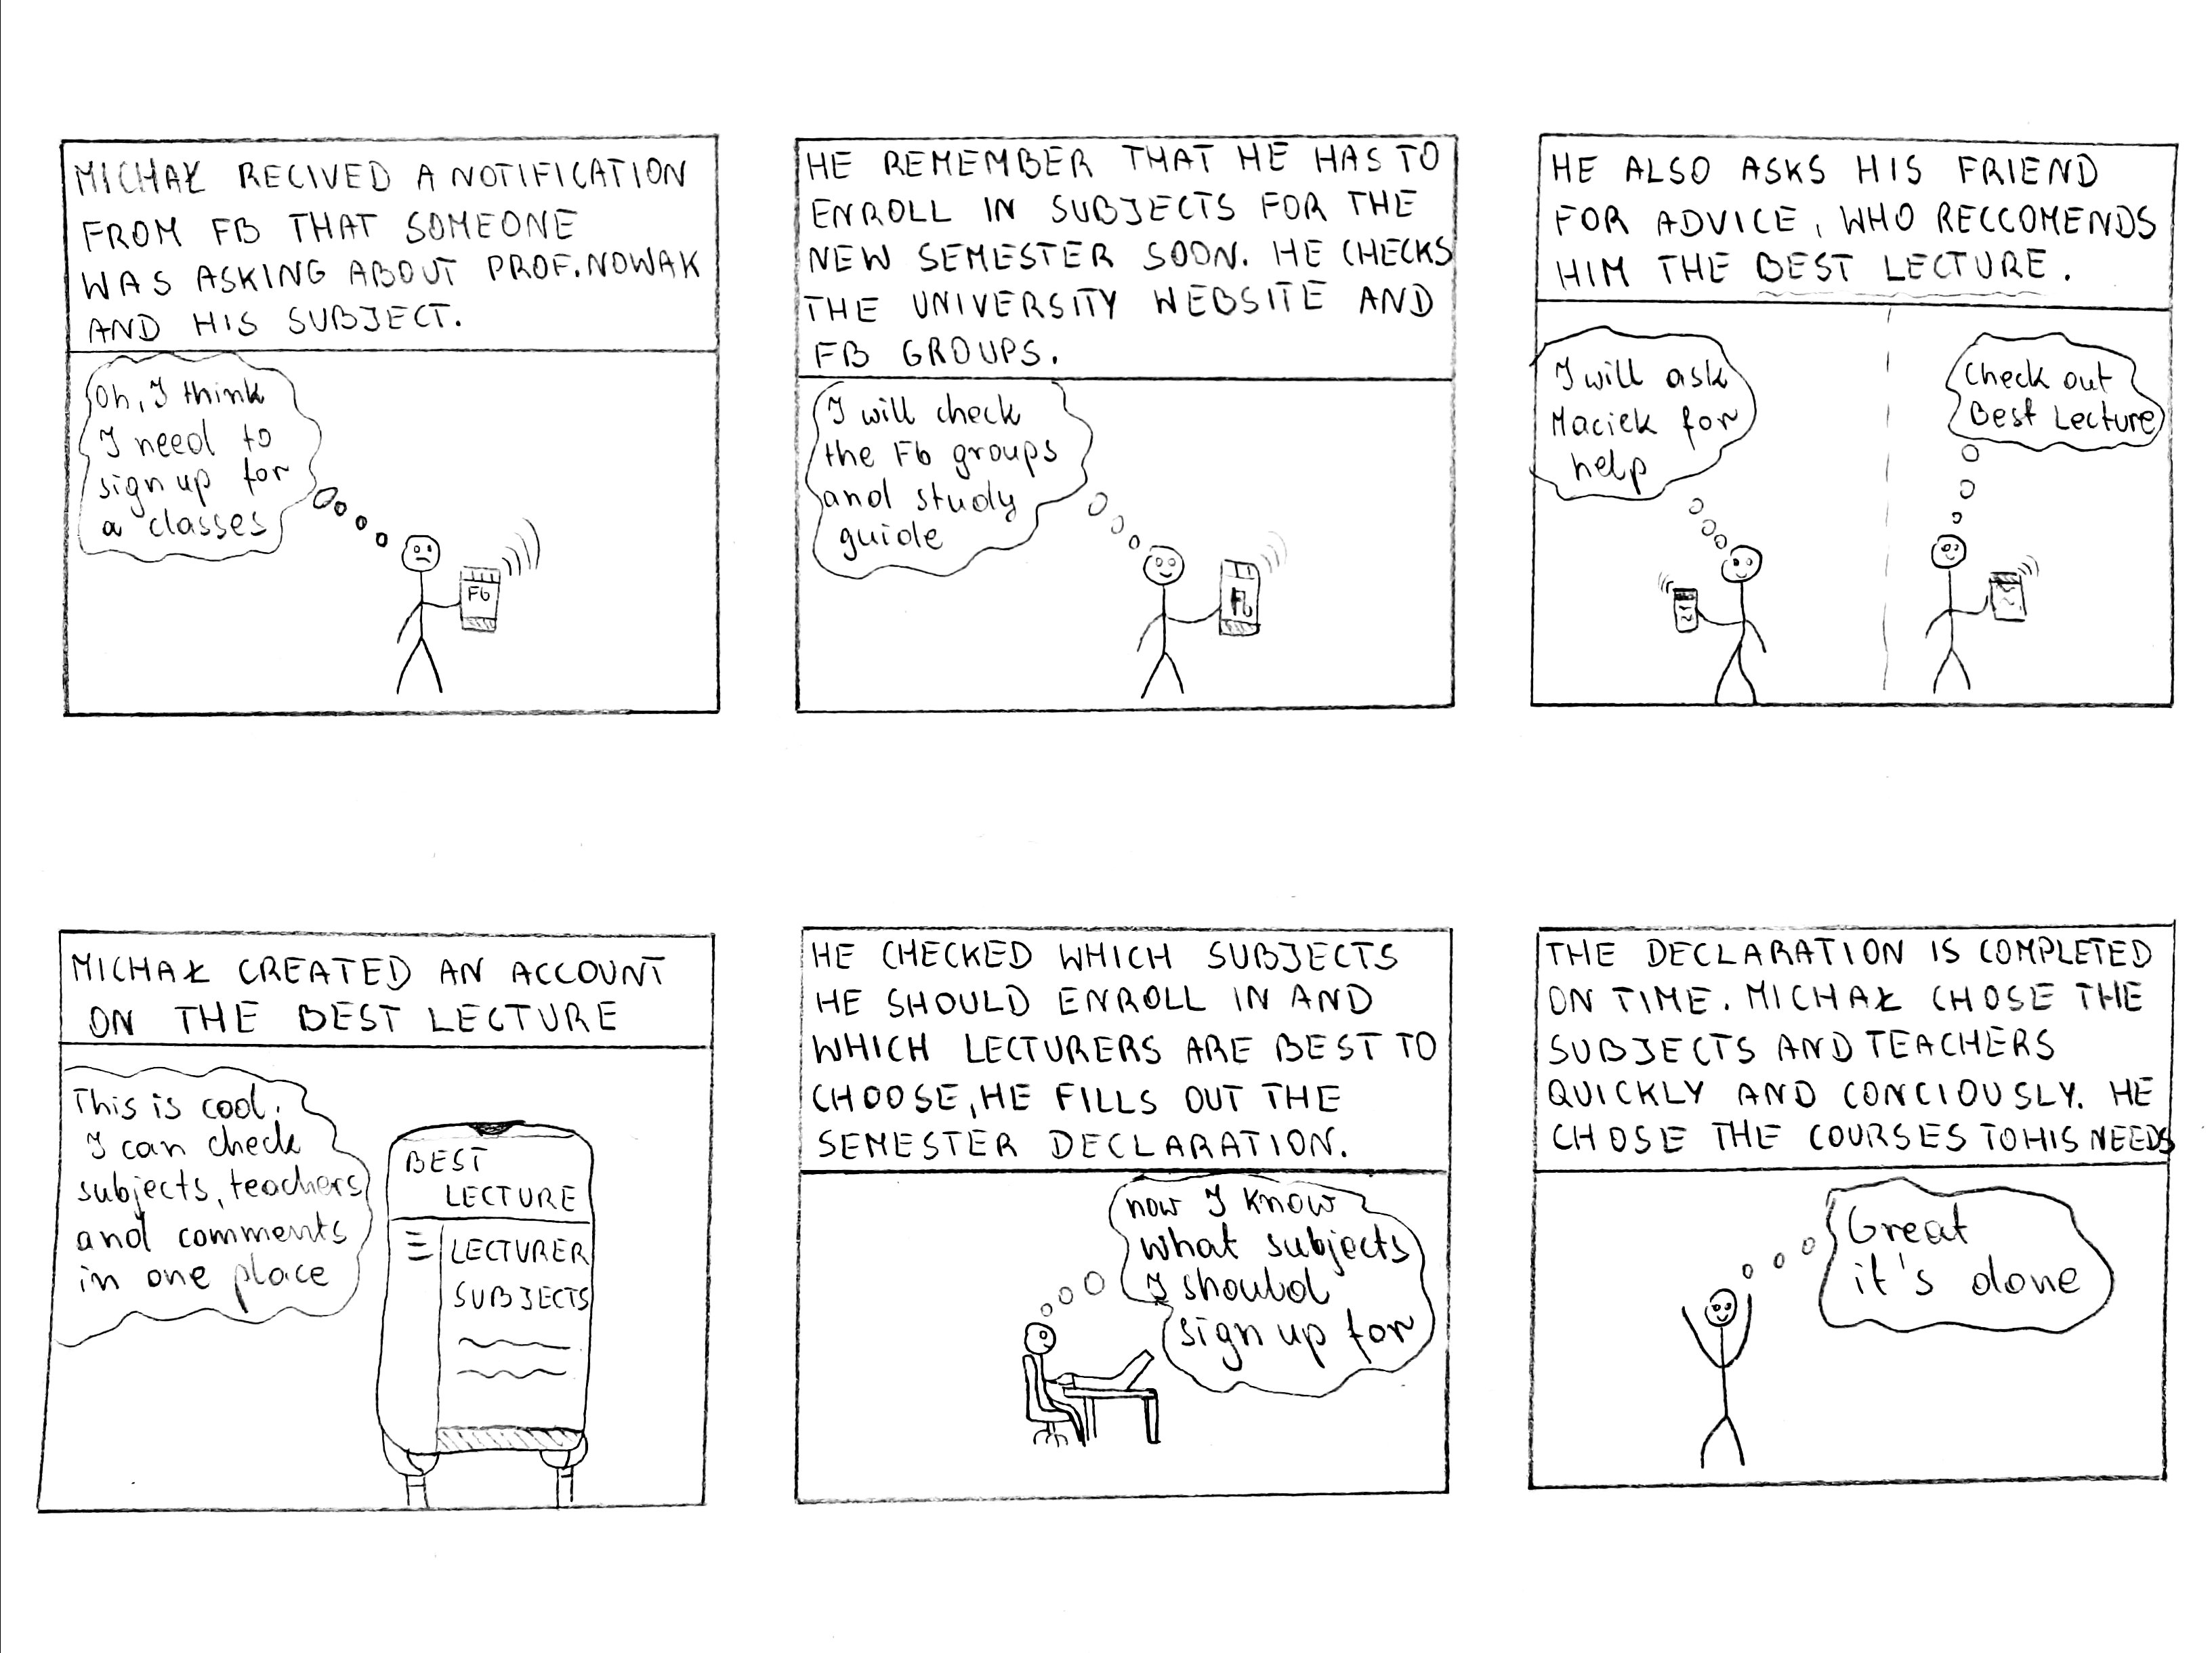 MICHAŁ RECIVED A NOTIFICATION
FROM FB THAT SOMEONE
WAS ASKING ABOUT PROF. NOWAK
AND HIS SUBJECT.
Oh, I think
I need to
sign up for
a classes
Fb
HE REMEMBER THAT HE HAS TO
ENROLL IN SUBJECTS FOR THE
NEW SEMESTER SOON. HE CHECKS
THE UNIVERSITY WEBSITE AND
FB GROUPS.
I will check
the Fb groups
and study
guide
Fb
HE ALSO ASKS HIS FRIEND
FOR ADVICE, WHO RECCOMENDS
HIM THE BEST LECTURE.
I will ask
Maciek for
help
Check out
Best Lecture
MICHAŁ CREATED AN ACCOUNT
ON THE BEST LECTURE
This is cool.
I can check
subjects, teachers
and comments
in one place
BEST
LECTURE
LECTURER
SUBJECTS
HE CHECKED WHICH SUBJECTS
HE SHOULD ENROLL IN AND
WHICH LECTURERS ARE BEST TO
CHOOSE, HE FILLS OUT THE
SEMESTER DECLARATION.
now I know
what subjects
I should
sign up for
THE DECLARATION IS COMPLETED
ON TIME. MICHAŁ CHOSE THE
SUBJECTS AND TEACHERS
QUICKLY AND CONCIOUSLY. HE
CHOSE THE COURSES TO HIS NEEDS
Great
it's done